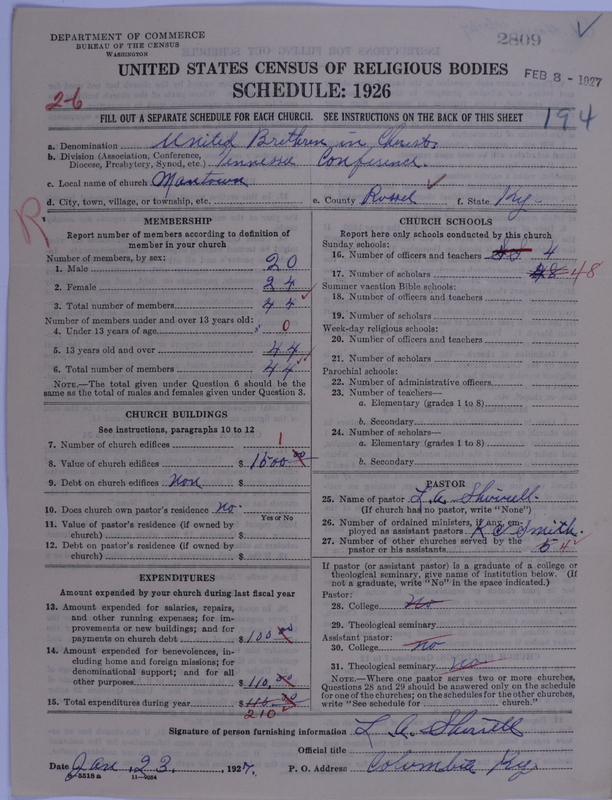 DEPARTMENT OF COMMERCE
BUREAU OF THE CENSUS
WASHINGTON
2809
UNITED STATES CENSUS OF RELIGIOUS BODIES
FEB 8 - 1927
SCHEDULE: 1926
2-6
FILL OUT A SEPARATE SCHEDULE FOR EACH CHURCH. SEE INSTRUCTIONS ON THE BACK OF THIS SHEET
194
a. Denomination United Brethren in Christ.
b. Division (Association, Conference, Diocese, Presbytery, Synod, etc.) Tennessee Conference.
c. Local name of church Mantown
d. City, town, village, or township, etc. e. County Russel f. State Ky.
R
MEMBERSHIP
Report number of members according to definition of
member in your church
Number of members, by sex:
1. Male 20
2. Female 24
3. Total number of members 44
Number of members under and over 13 years old:
4. Under 13 years of age 0
5. 13 years old and over 44
6. Total number of members 44
NOTE.—The total given under Question 6 should be
same as the total of males and females given under Question 3.
CHURCH BUILDINGS
See instructions, paragraphs 10 to 12
7. Number of church edifices 1
8. Value of church edifices $ 1500.00
9. Debt on church edifices non $
10. Does church own pastor's residence no.
Yes or No
11. Value of pastor's residence (if owned by
church) $
12. Debt on pastor's residence (if owned by
church) $
EXPENDITURES
Amount expended by your church during last fiscal year
13. Amount expended for salaries, repairs,
and other running expenses; for im-
provements or new buildings; and for
payments on church debt $ 100
14. Amount expended for benevolences, in-
cluding home and foreign missions; for
denominational support; and for all
other purposes $ 110.00
15. Total expenditures during year $ 110.00
210
CHURCH SCHOOLS
Report here only schools conducted by this church
Sunday schools:
16. Number of officers and teachers 4
17. Number of scholars 48 48
Summer vacation Bible schools:
18. Number of officers and teachers
19. Number of scholars
Week-day religious schools:
20. Number of officers and teachers
21. Number of scholars
Parochial schools:
22. Number of administrative officers
23. Number of teachers—
a. Elementary (grades 1 to 8)
b. Secondary
24. Number of scholars—
a. Elementary (grades 1 to 8)
b. Secondary
PASTOR
25. Name of pastor L. A. Shirrell.
(If church has no pastor, write "None")
26. Number of ordained ministers, if any, em-
ployed as assistant pastors K C Smith.
27. Number of other churches served by the
pastor or his assistants 5 4
If pastor (or assistant pastor) is a graduate of a college or
theological seminary, give name of institution below. (If
not a graduate, write "No" in the space indicated.)
Pastor:
28. College no
29. Theological seminary
Assistant pastor:
30. College no
31. Theological seminary no
NOTE.—Where one pastor serves two or more churches,
Questions 28 and 29 should be answered only on the schedule
for one of the churches; on the schedules for the other churches,
write "See schedule for church."
Signature of person furnishing information L. A. Shirrell
Official title
Date Jan, 23, 1927. P. O. Address Columbia Ky.
8-5518a 11-9034